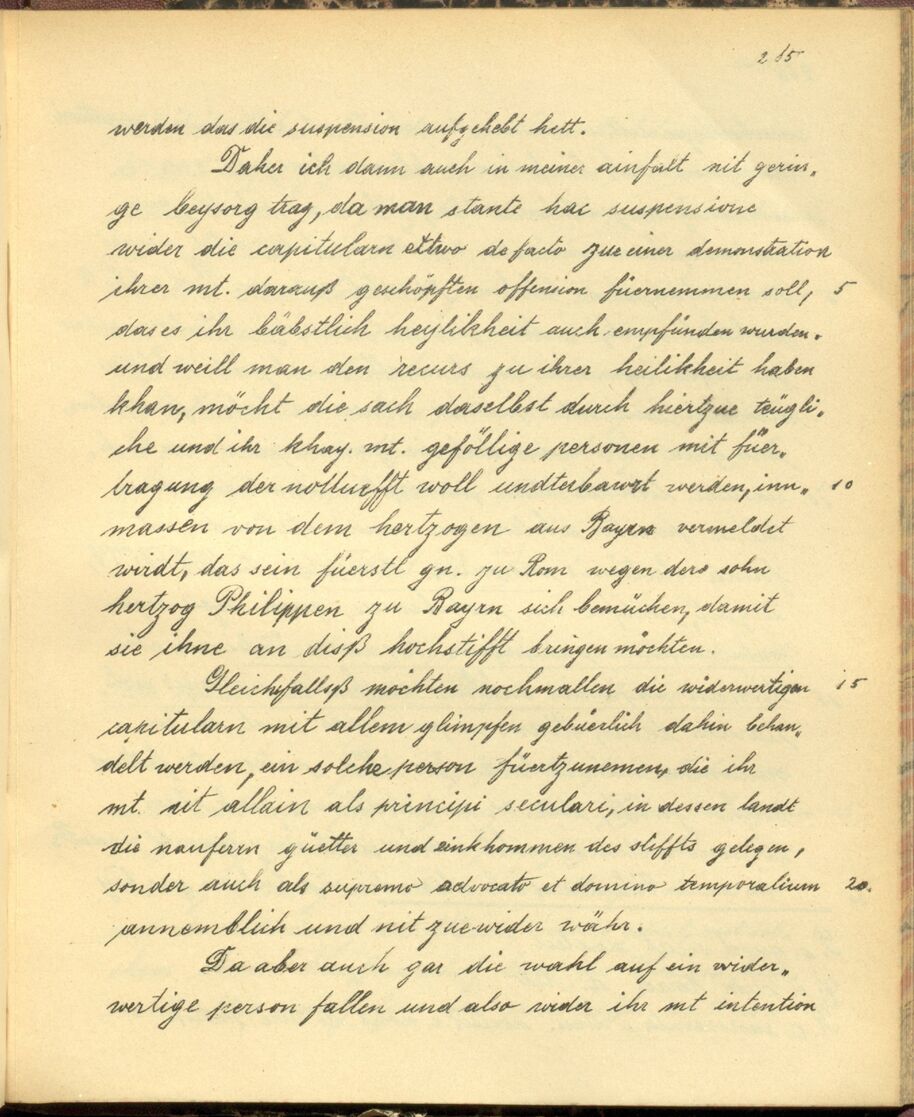 265
werden das die suspension aufgehebt hett.
Daher ich dann auch in meiner ainfalt nit gerin„
ge beysorg trag, da man stante hac suspensione
wider die capitularn ettwo de facto zue einer demonstration
ihrer mt. darauß geschöpften offension füernemmen soll, 5
das es ihr bäbstlich heylikheit auch empfünden wurden.
und weill man den recurs zu ihrer heilikheit haben
khan, möcht die sach daselbst durch hiertzue teügli„
che und ihr khay. mt. geföllige personen mit füer„
tragung der notturfft woll undterbawt werden, inn„ 10
massen von dem hertzogen aus Bayrn vermeldet
wirdt, das sein füerstl gn. zu Rom wegen dero sohn
hertzog Philippen zu Bayrn sich bemüehen, damit
sie ihne an disß hochstifft bringen möchten.
Gleichsfallsß möchten nochmallen die widerwertigen 15
capitularn mit allem glimpfen gebüerlich dahin behan„
delt werden, ein solche person füertzunemen, die ihr
mt. nit allain als principi seculari, in dessen landt
die güetter und einkhommen des stiffts gelegen,
sonder auch als supremo advocato et domino temporalium 20.
annemblich und nit zuewider währ.
Da aber auch gar die wahl auf ein wider„
wertige person fallen und also wider ihr mt intention